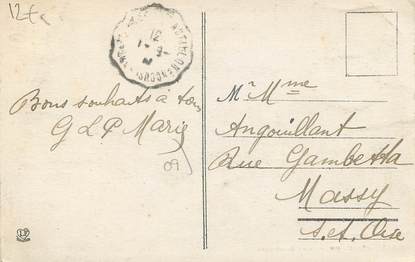 12 F
12
Bons souhaits à tous
G L P Marie
09
Mr Mme
Angouillant
Rue Gambetta
Massy
S. et. Oise